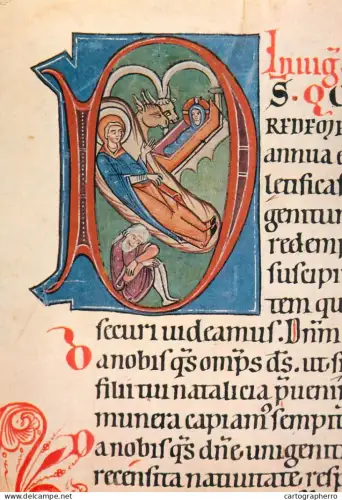 In uig
S. Q
REDEMP
annua e
letificas
genitum
redemp
suscipi
tem qu
securi uideamus. Dnm
Da nobis qs omps ds. ut si
filii tui natalicia pueni
munera capiam sempit
Da nobis qs dne unigenit
recensita natiuitate. resp
© www.delcampe.net
cartographerro